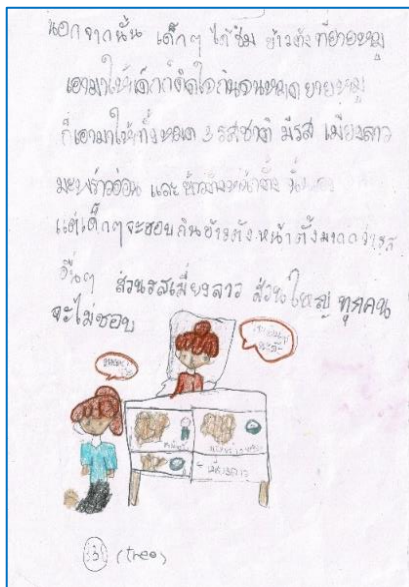 นอกจากนั้น เด็กๆ ได้ชิม ข้าวตัง ที่ยายหมู
เอามาให้เด็กก็ติดใจกินจนหมด ยายหมู
ก็เอามาให้ทั้งหมด 3 รสชาติ มีรส เมี่ยงลาว
มะพร้าวอ่อน และ ข้าวตังหน้าตั้ง
แต่เด็กๆจะชอบกินข้าวตังหน้าตั้งมากกว่ารส
อื่นๆ ส่วนรสเมี่ยงลาว ส่วนใหญ่ ทุกคน
จะไม่ชอบ
เมี่ยงลาว
3 (tree)